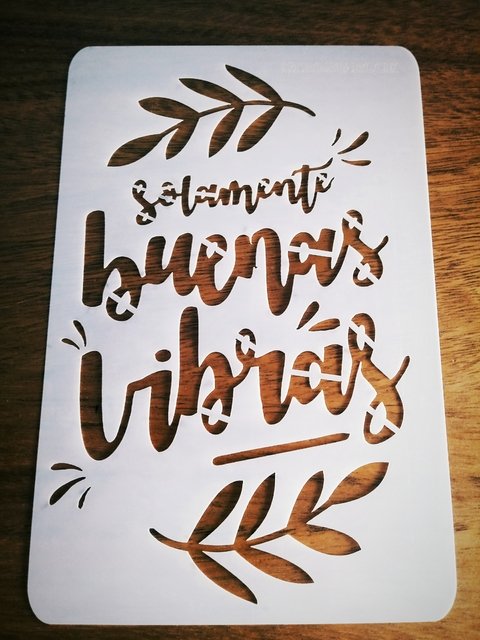 solamente
buenas
vibras